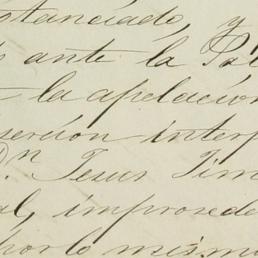 stanciado, y
ante la
la apelación
serción interp
Dn. Jesus Jim
al, improsede
por lo mismo